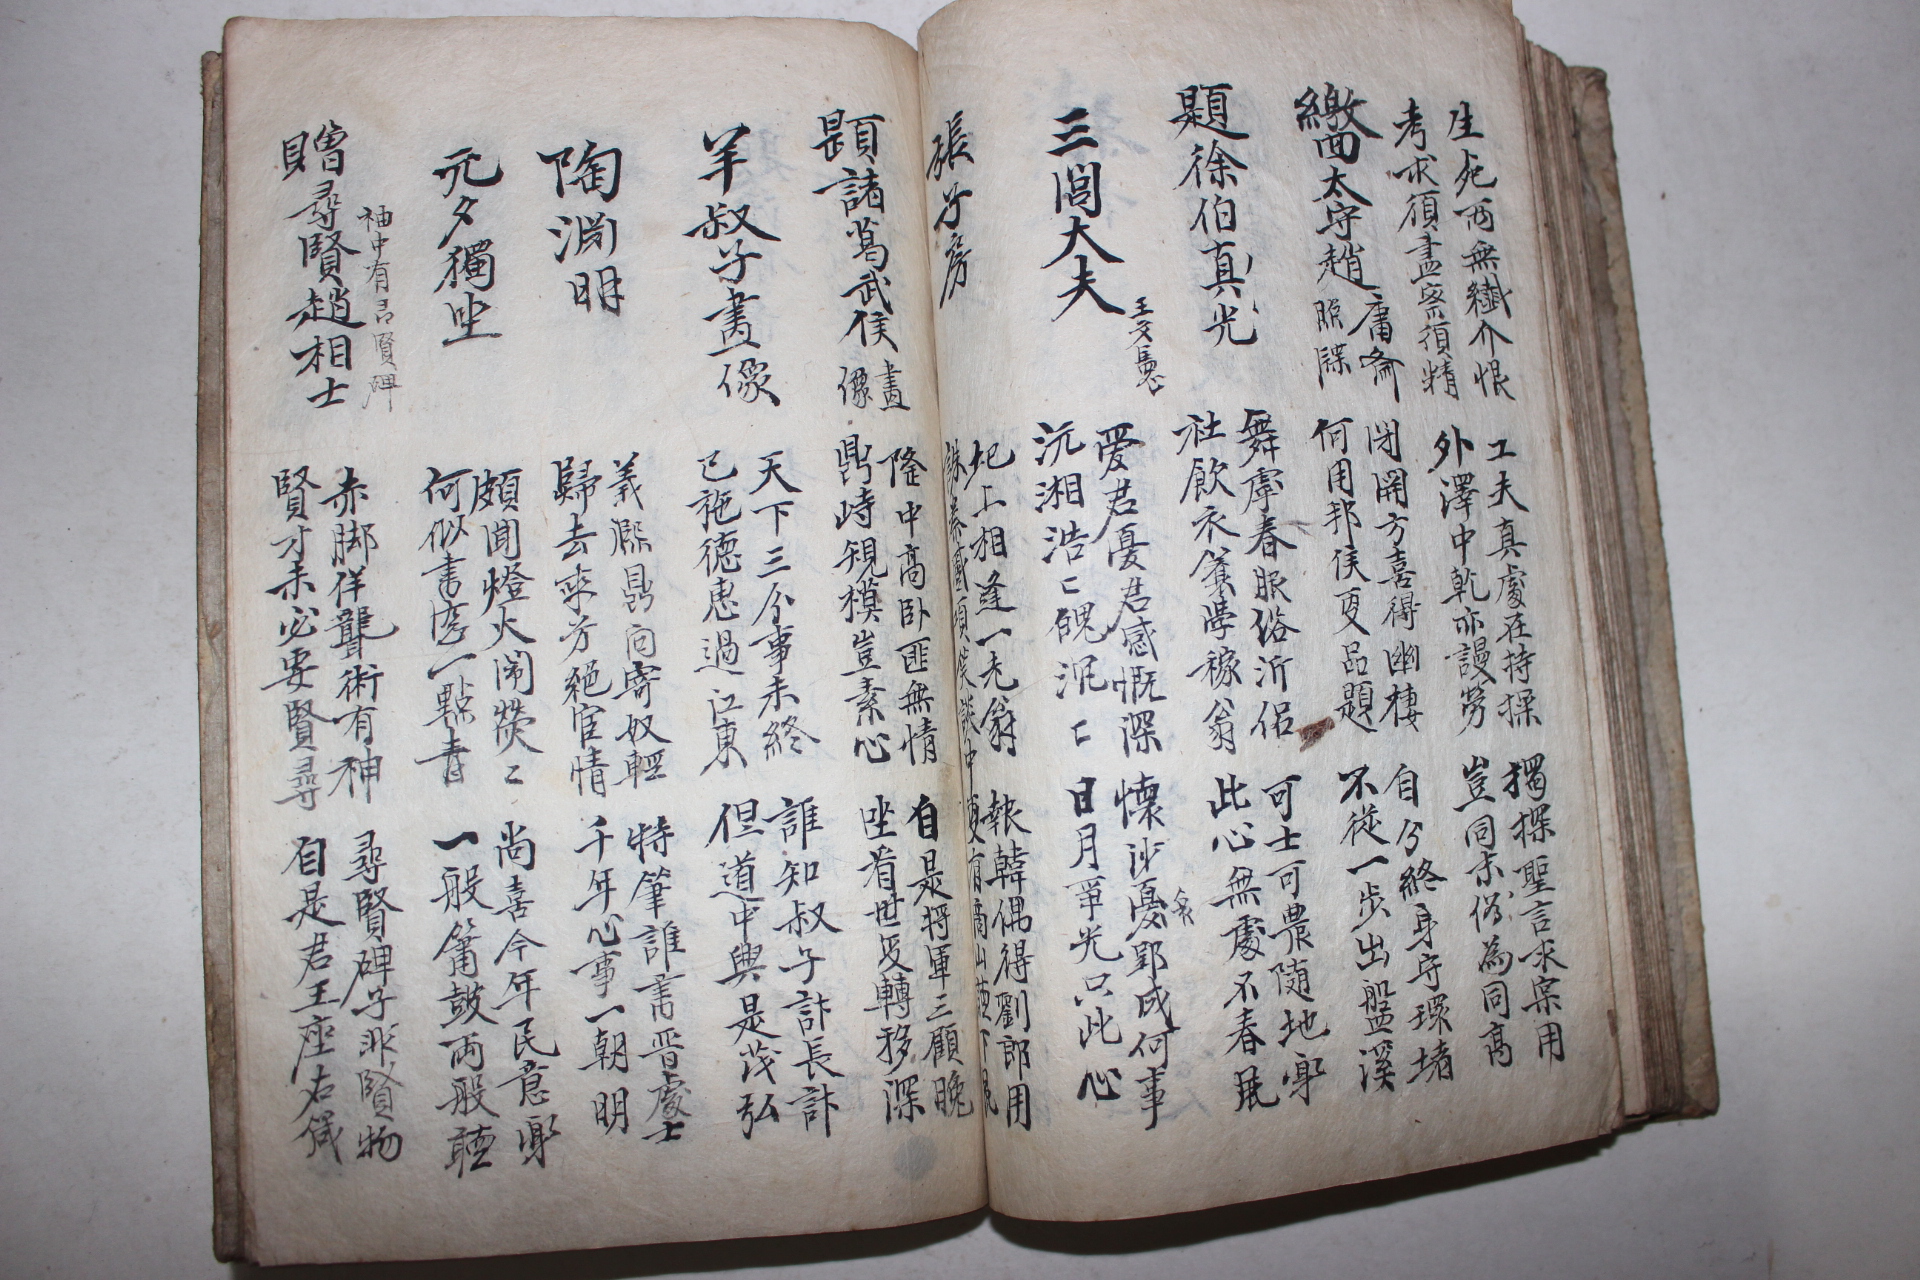 生死兩無纖介恨
考求須盡密須精
工夫真處在持操
外澤中乾亦謾勞
獨探聖言求案用
豈同末俗為同高
繳回太守趙庸齋照牒
閉關方喜得幽棲
何用邦侯更品題
自分終身守環堵
不從一步出盤溪
題徐伯真光
舞雩春服俗沂侶
社飲衣食學稼翁
可士可農隨地
此心無處不春
三閭大夫
王文憲
愛君憂君感慨深
沅湘浩〻魄沉〻
懷沙憂郢成何事
日月爭光只此心
張子房
圯上相逢一老翁
誅秦蹙項笑談中
報韓偶得劉郎用
更有商山
題諸葛武侯畫像
隆中高卧匪無情
鼎峙規模豈素心
自是將軍三顧晚
坐看世変轉移深
羊叔子畫像
天下三分事未終
已施德惠過江東
誰知叔子計長計
但道中興是茂弘
陶淵明
義熙鼎向寄奴輕
歸去來兮絕宦情
特筆誰書晋處士
千年心事一朝明
元夕獨坐
頗聞燈火鬧熒〻
何似書窓一點青
尚喜今年民意
一般簫鼓兩般聽
贈尋賢趙相士
袖中有賢碑
赤脚佯聾術有神
賢才未必要賢尋
尋賢碑子非賢物
自是君王座右箴